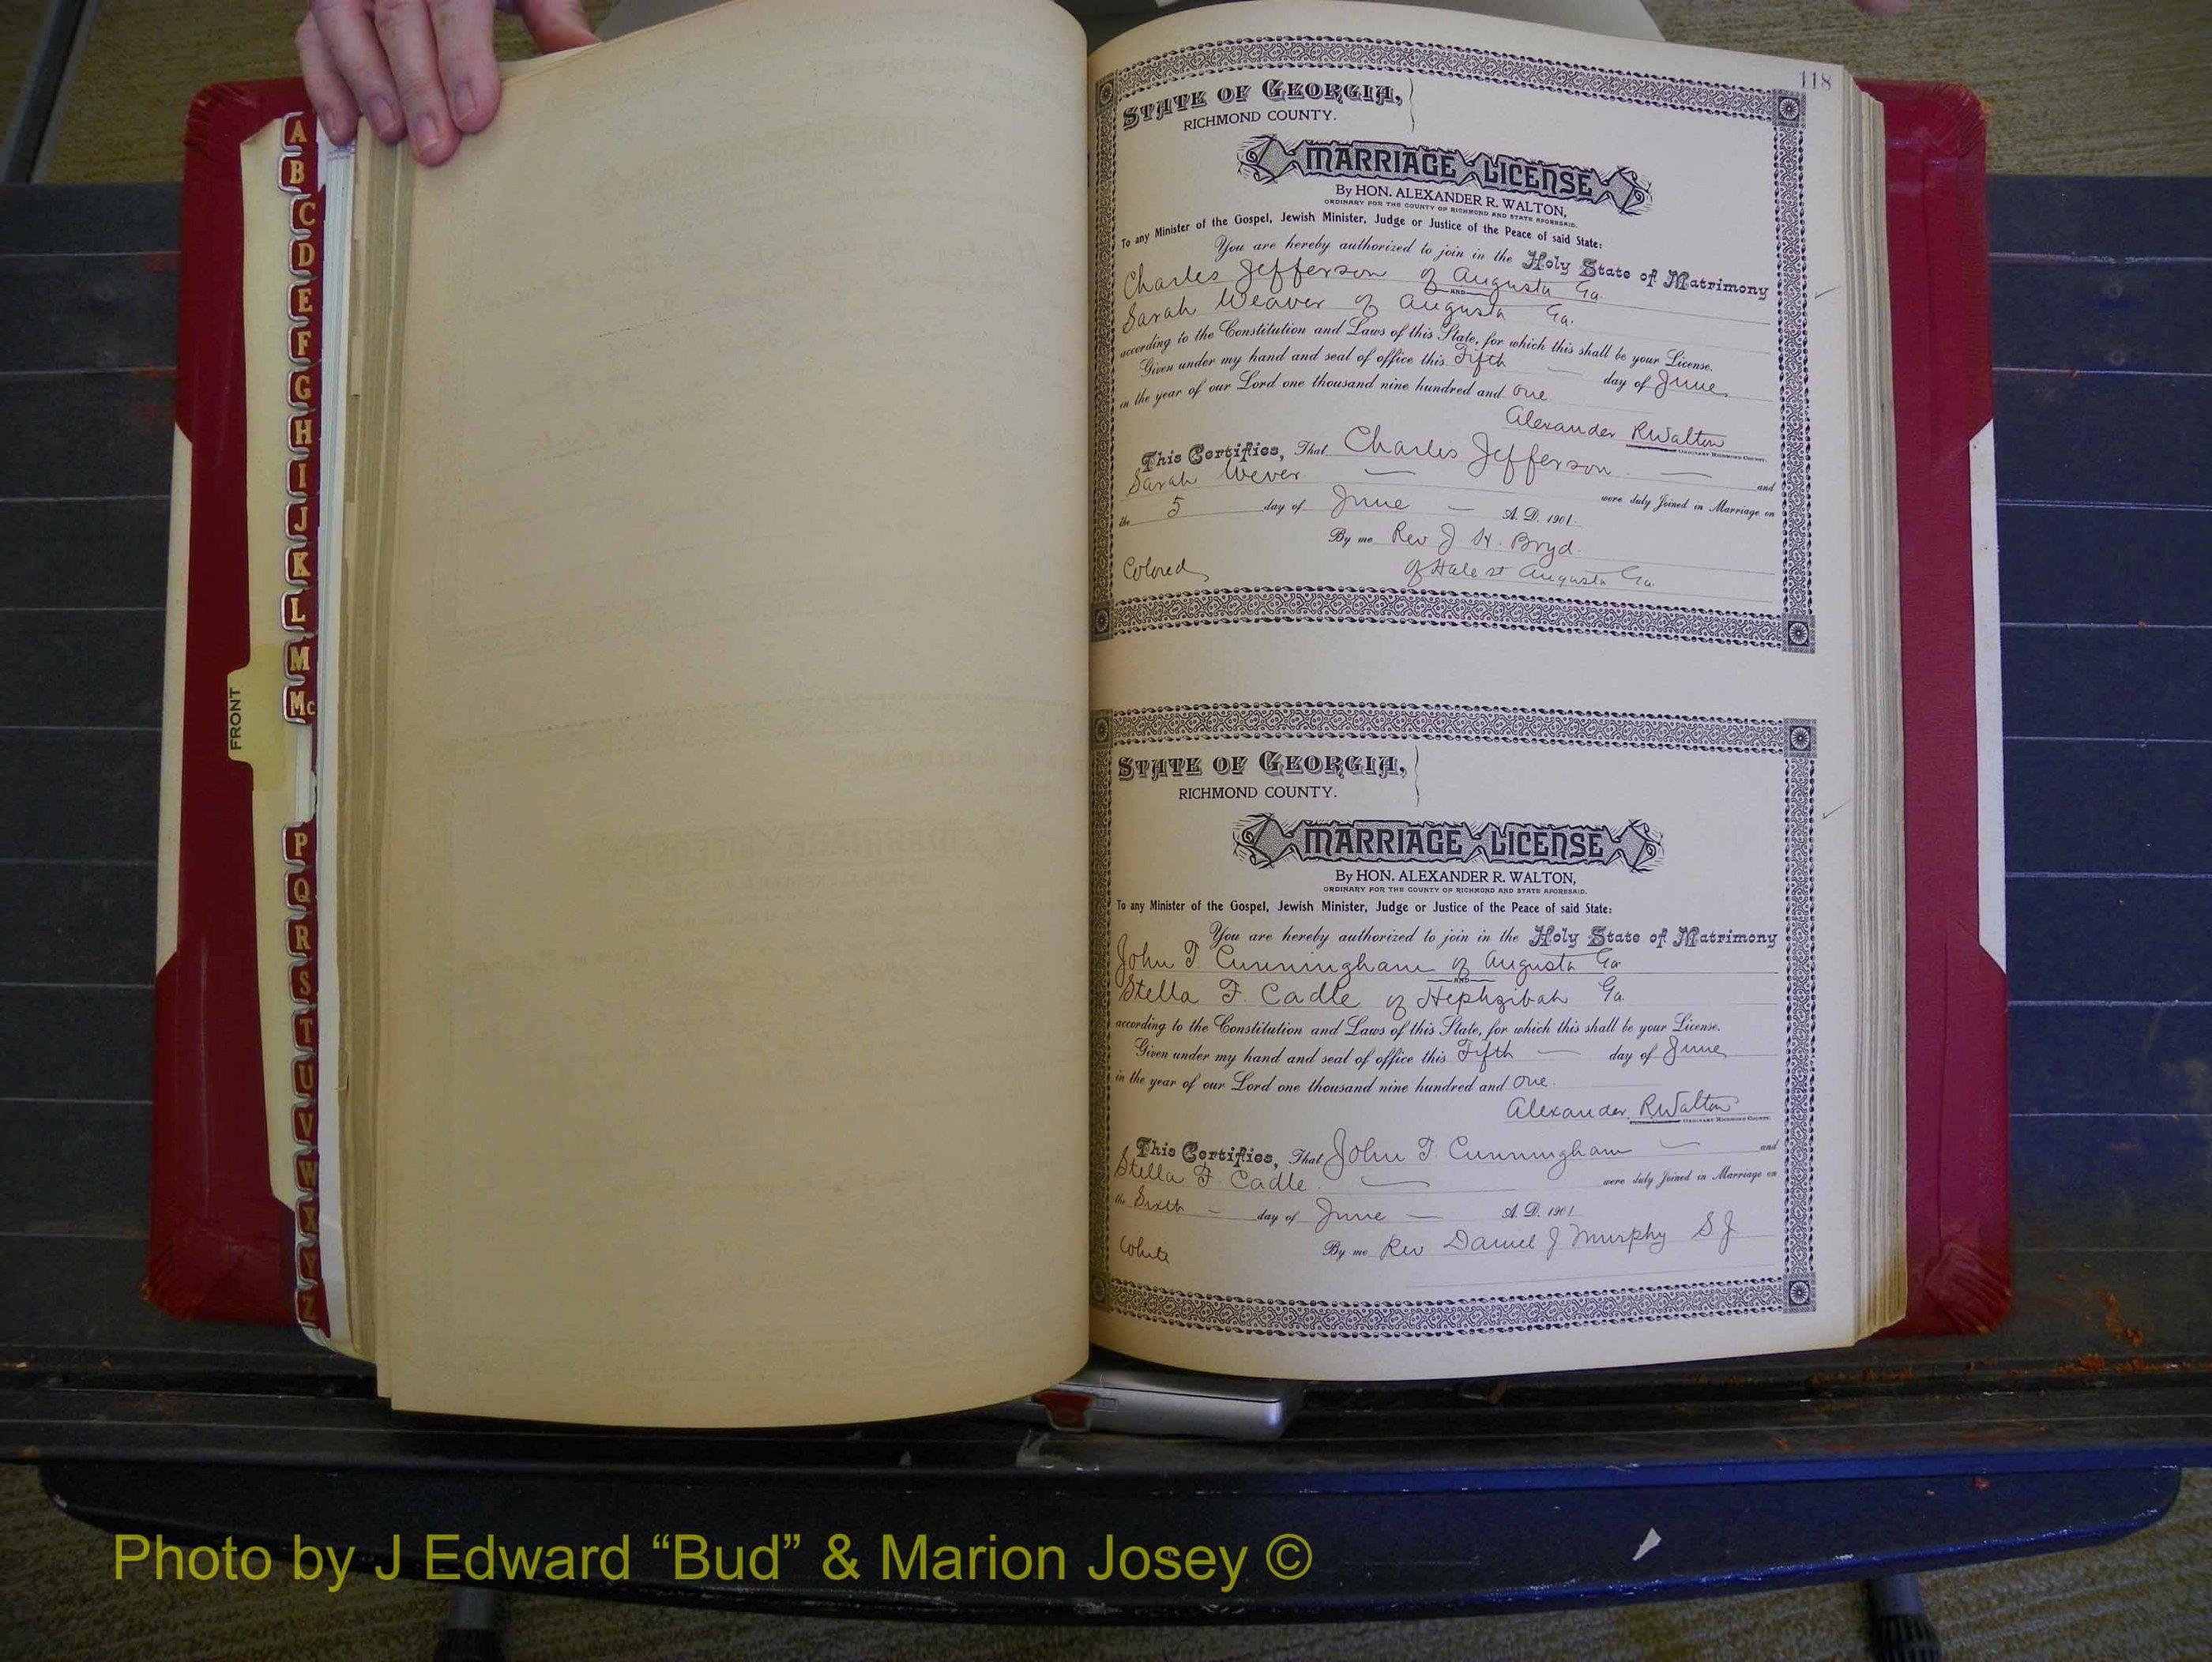 A
B
C
D
E
F
G
H
I
J
K
L
M
Mc
FRONT
P
Q
R
S
T
U
V
W
X
Y
Z
118
STATE OF GEORGIA,
RICHMOND COUNTY.
MARRIAGE LICENSE
By HON. ALEXANDER R. WALTON,
ORDINARY FOR THE COUNTY OF RICHMOND AND STATE AFORESAID.
To any Minister of the Gospel, Jewish Minister, Judge or Justice of the Peace of said State:
You are hereby authorized to join in the Holy State of Matrimony
Charles Jefferson of Augusta Ga.
AND
Sarah Weaver of Augusta Ga.
according to the Constitution and Laws of this State, for which this shall be your License.
Given under my hand and seal of office this Fifth day of June
in the year of our Lord one thousand nine hundred and one
Alexander R Walton
ORDINARY RICHMOND COUNTY.
This Certifies, That Charles Jefferson and
Sarah Wever were duly Joined in Marriage on
the 5 day of June A. D. 1901.
By me Rev J. H. Bryd.
Colored of Hale st Augusta Ga.
STATE OF GEORGIA,
RICHMOND COUNTY.
MARRIAGE LICENSE
By HON. ALEXANDER R. WALTON,
ORDINARY FOR THE COUNTY OF RICHMOND AND STATE AFORESAID.
To any Minister of the Gospel, Jewish Minister, Judge or Justice of the Peace of said State:
You are hereby authorized to join in the Holy State of Matrimony
John T Cunningham of Augusta Ga
AND
Stella F. Cadle of Hephzibah Ga.
according to the Constitution and Laws of this State, for which this shall be your License.
Given under my hand and seal of office this Fifth day of June
in the year of our Lord one thousand nine hundred and one.
Alexander R Walton
ORDINARY RICHMOND COUNTY.
This Certifies, That John T. Cunningham and
Stella F. Cadle were duly Joined in Marriage on
the Sixth day of June A. D. 1901
White By me Rev Daniel J Murphy S J
Photo by J Edward “Bud” & Marion Josey ©